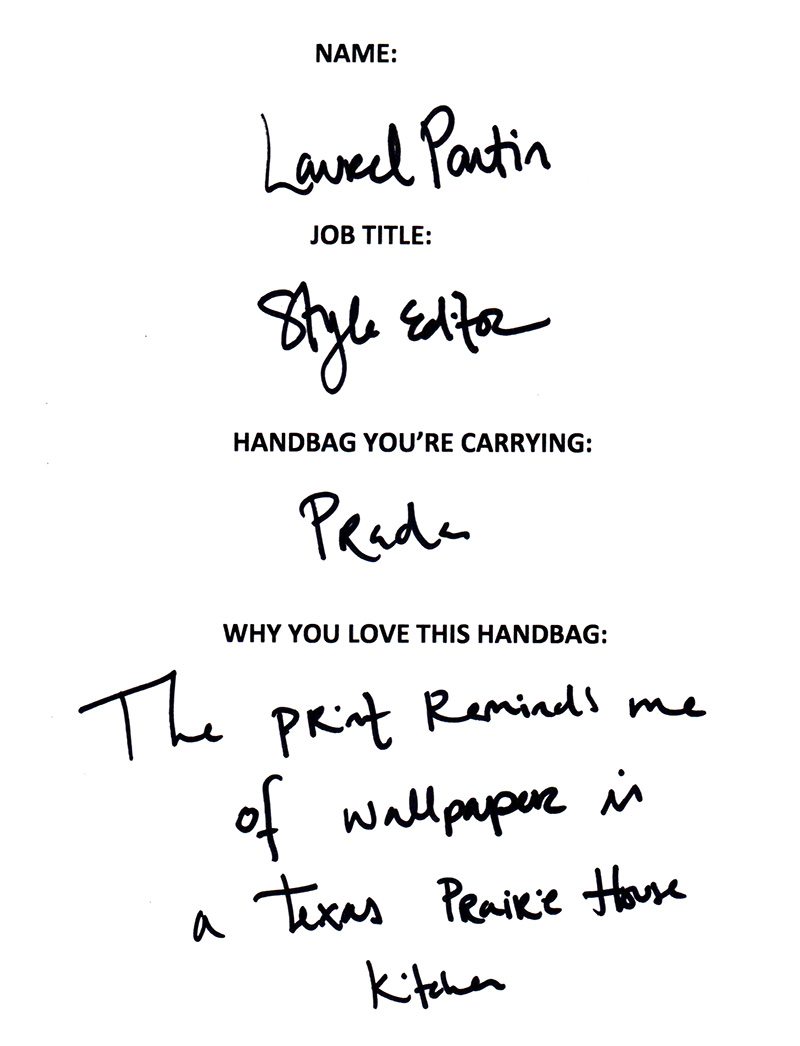 NAME:
Laurel Pantin
JOB TITLE:
Style Editor
HANDBAG YOU'RE CARRYING:
Prada
WHY YOU LOVE THIS HANDBAG:
The print Reminds me
of wallpaper in
a Texas Prairie House
Kitchen